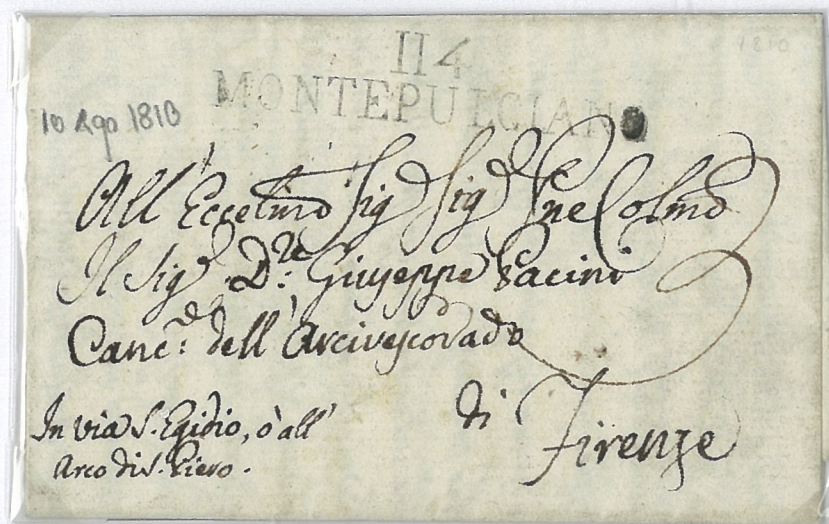 1810
114
MONTEPULCIANO
10 Ago 1810
All' Eccelmo Sig.e Sig.e Pne Colmo
Il Sig.e D.re Giuseppe Pacini
Canc.e dell' Arcivescovado
di Firenze
In via S. Egidio, o' all'
Arco di S. Piero.